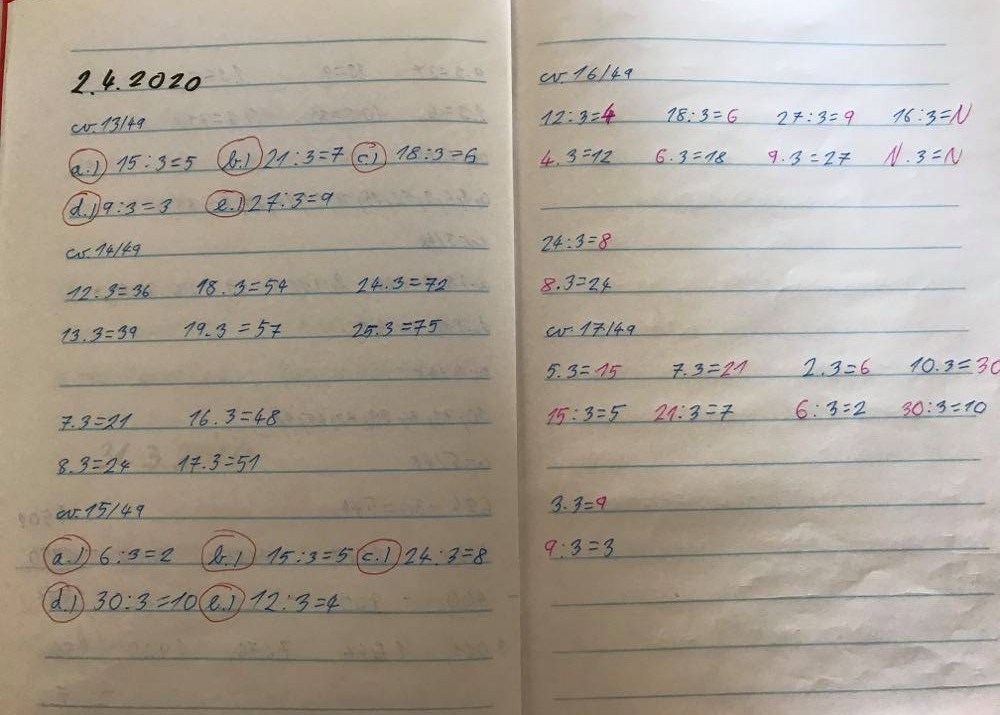 2.4.2020
cv.13/49
a.) 15:3=5 b.) 21:3=7 c.) 18:3=6
d.) 9:3=3 e.) 27:3=9
cv.14/49
12.3=36 18.3=54 24.3=72
13.3=39 19.3=57 25.3=75
7.3=21 16.3=48
8.3=24 17.3=51
cv.15/49
a.) 6:3=2 b.) 15:3=5 c.) 24:3=8
d.) 30:3=10 e.) 12:3=4
cv.16/49
12:3=4 18:3=6 27:3=9 16:3=N
4.3=12 6.3=18 9.3=27 N.3=N
24:3=8
8.3=24
cv.17/49
5.3=15 7.3=21 2.3=6 10.3=30
15:3=5 21:3=7 6:3=2 30:3=10
3.3=9
9:3=3